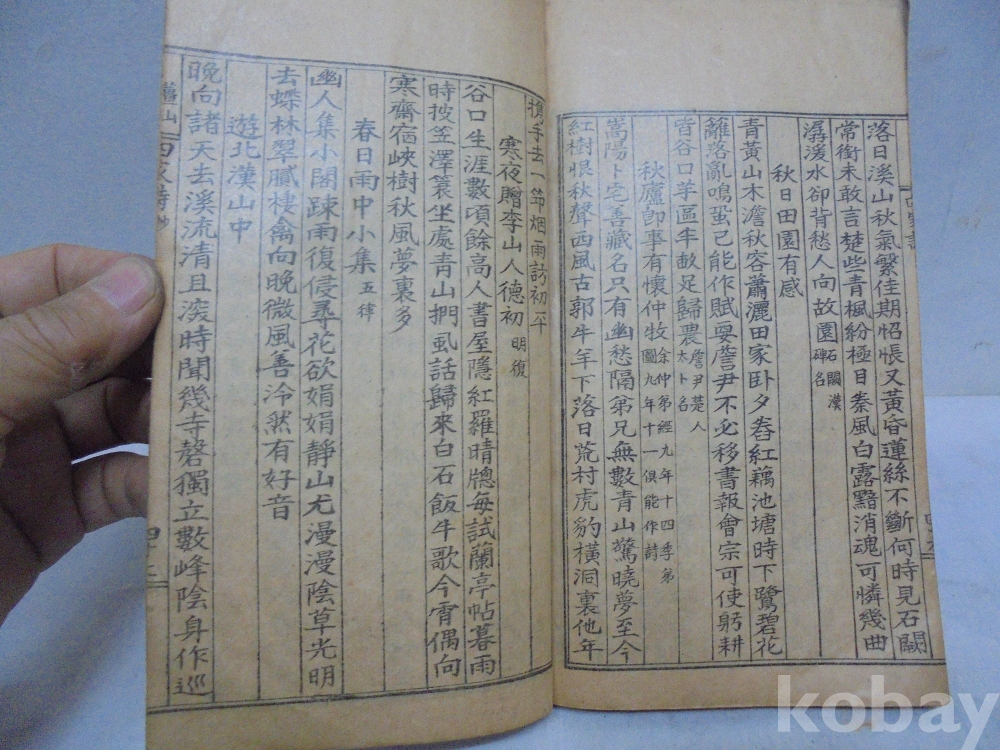 落日溪山秋氣繁佳期怊悵又黃昏蓮絲不斷何時見石闕
常銜未敢言楚些青楓紛極目秦風白露黯消魂可憐幾曲
潺湲水卻背愁人向故園石闕漢碑名
秋日田園有感
青黃山木澹秋容蕭灑田家臥夕舂紅藕池塘時下鷺碧花
籬落亂鳴蛩已能作賦要詹尹不必移書報會宗可使躬耕
皆谷口羊區牛畝足歸農詹尹楚人太卜名
秋廬卽事有懷仲牧余仲弟經九年十四季弟圖九年十一俱能作詩
嵩陽卜宅善藏名只有幽愁隔弟兄無數青山驚曉夢至今
紅樹恨秋聲西風古郭牛羊下落日荒村虎豹橫洞裏他年
攜手去一笻烟雨訪初平
寒夜贈李山人德初明復
谷口生涯數頃餘高人書屋隱紅羅晴牕每試蘭亭帖暮雨
時披笠澤蓑坐處青山捫虱話歸來白石飯牛歌今宵偶向
寒齋宿峽樹秋風夢裏多
春日雨中小集五律
幽人集小閣疎雨復侵尋花欲娟娟靜山尤漫漫陰草光明
去蝶林翠膩棲禽向晚微風善泠然有好音
遊北漢山中
晚向諸天去溪流淸且深時聞幾寺磬獨立數峰陰身作巡
山四家詩抄
kobay